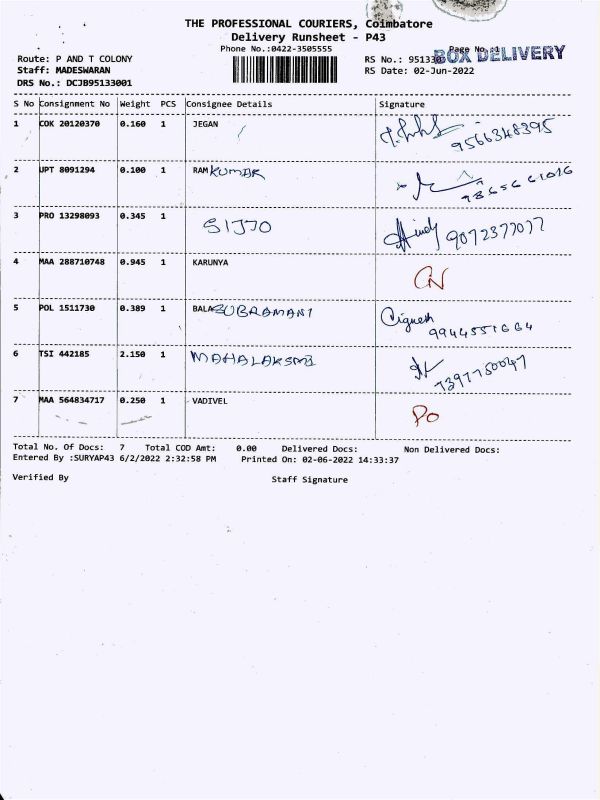 THE PROFESSIONAL COURIERS, Coimbatore
Delivery Runsheet - P43
Phone No.:0422-3505555
Page No.:1
BOX DELIVERY
Route: P AND T COLONY
RS No.: 9513300
Staff: MADESWARAN
RS Date: 02-Jun-2022
DRS No.: DCJB95133001
S No Consignment No Weight PCS Consignee Details Signature
1 COK 20120370 0.160 1 JEGAN 9566348395
2 UPT 8091294 0.100 1 RAM KUMAR
3 PRO 13298093 0.345 1 SIJJO 9072377077
4 MAA 288710748 0.945 1 KARUNYA CN
5 POL 1511730 0.389 1 BALASUBRAMANI Vignesh 9944551664
6 TSI 442185 2.150 1 MAHALAKSMI 7397750047
7 MAA 564834717 0.250 1 VADIVEL PO
Total No. Of Docs: 7 Total COD Amt: 0.00 Delivered Docs: Non Delivered Docs:
Entered By :SURYAP43 6/2/2022 2:32:58 PM Printed On: 02-06-2022 14:33:37
Verified By Staff Signature